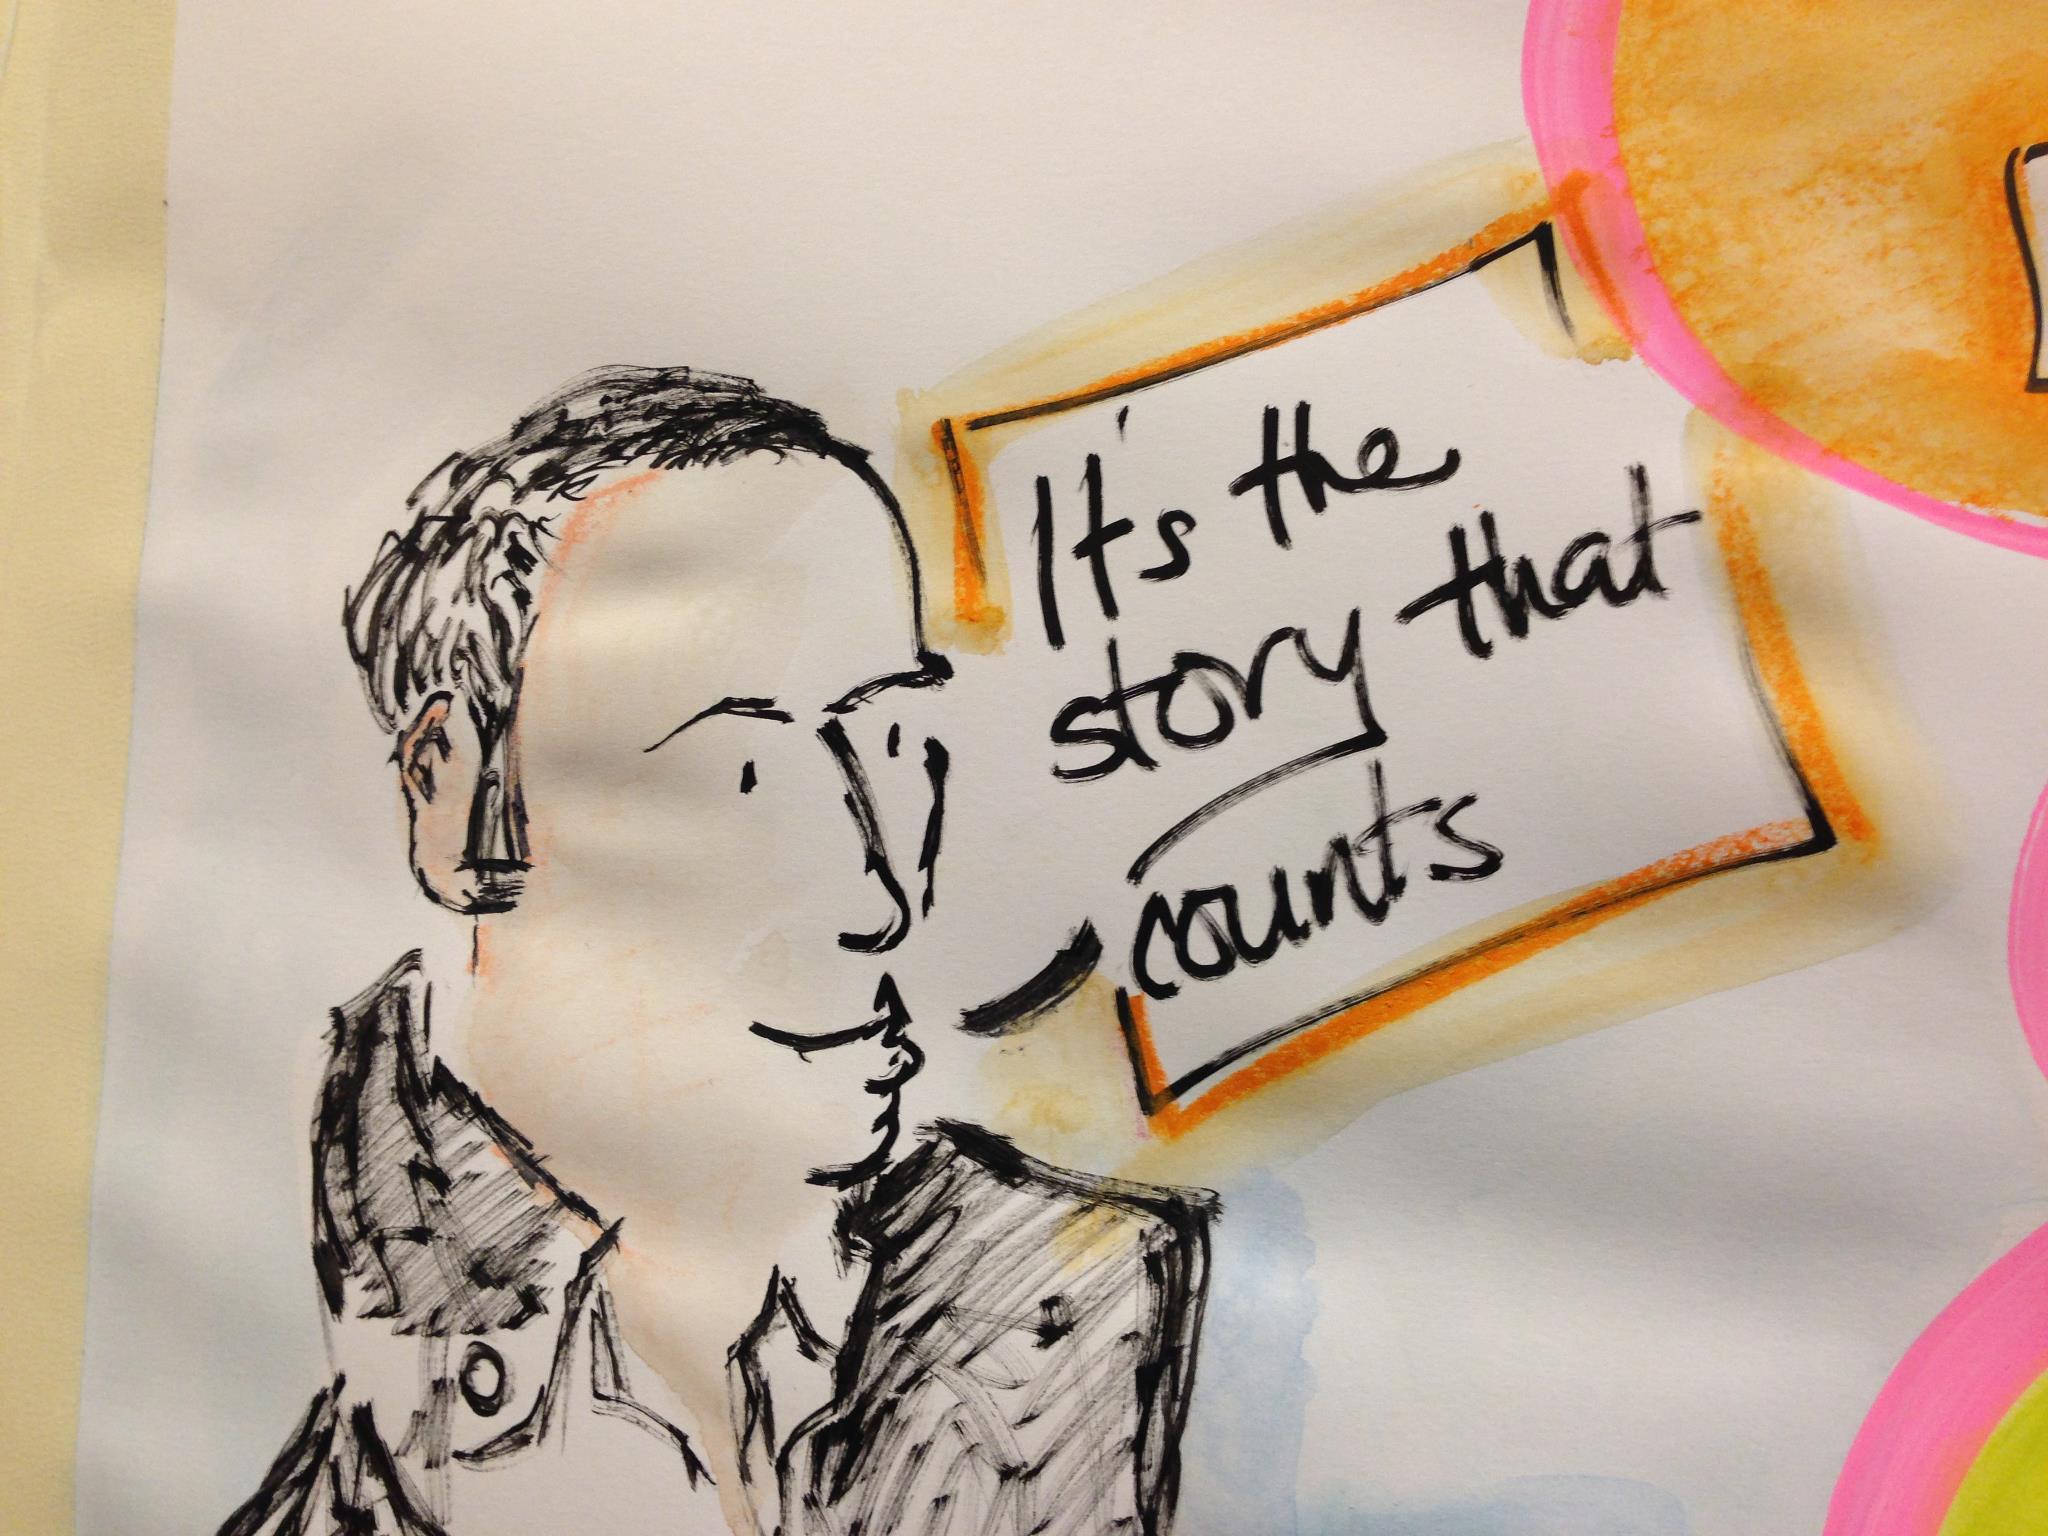 It's the
story that
counts